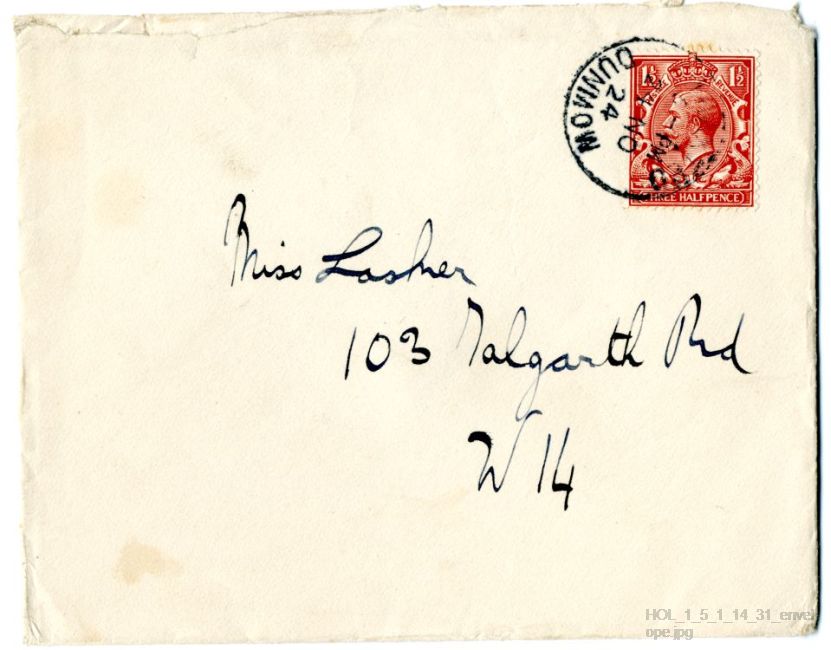 DUNMOW
24
NO
1½ 1½
THREE HALFPENCE
Miss Lasker
103 Talgarth Rd
W 14
HOL_1_5_1_14_31_envel
ope.jpg